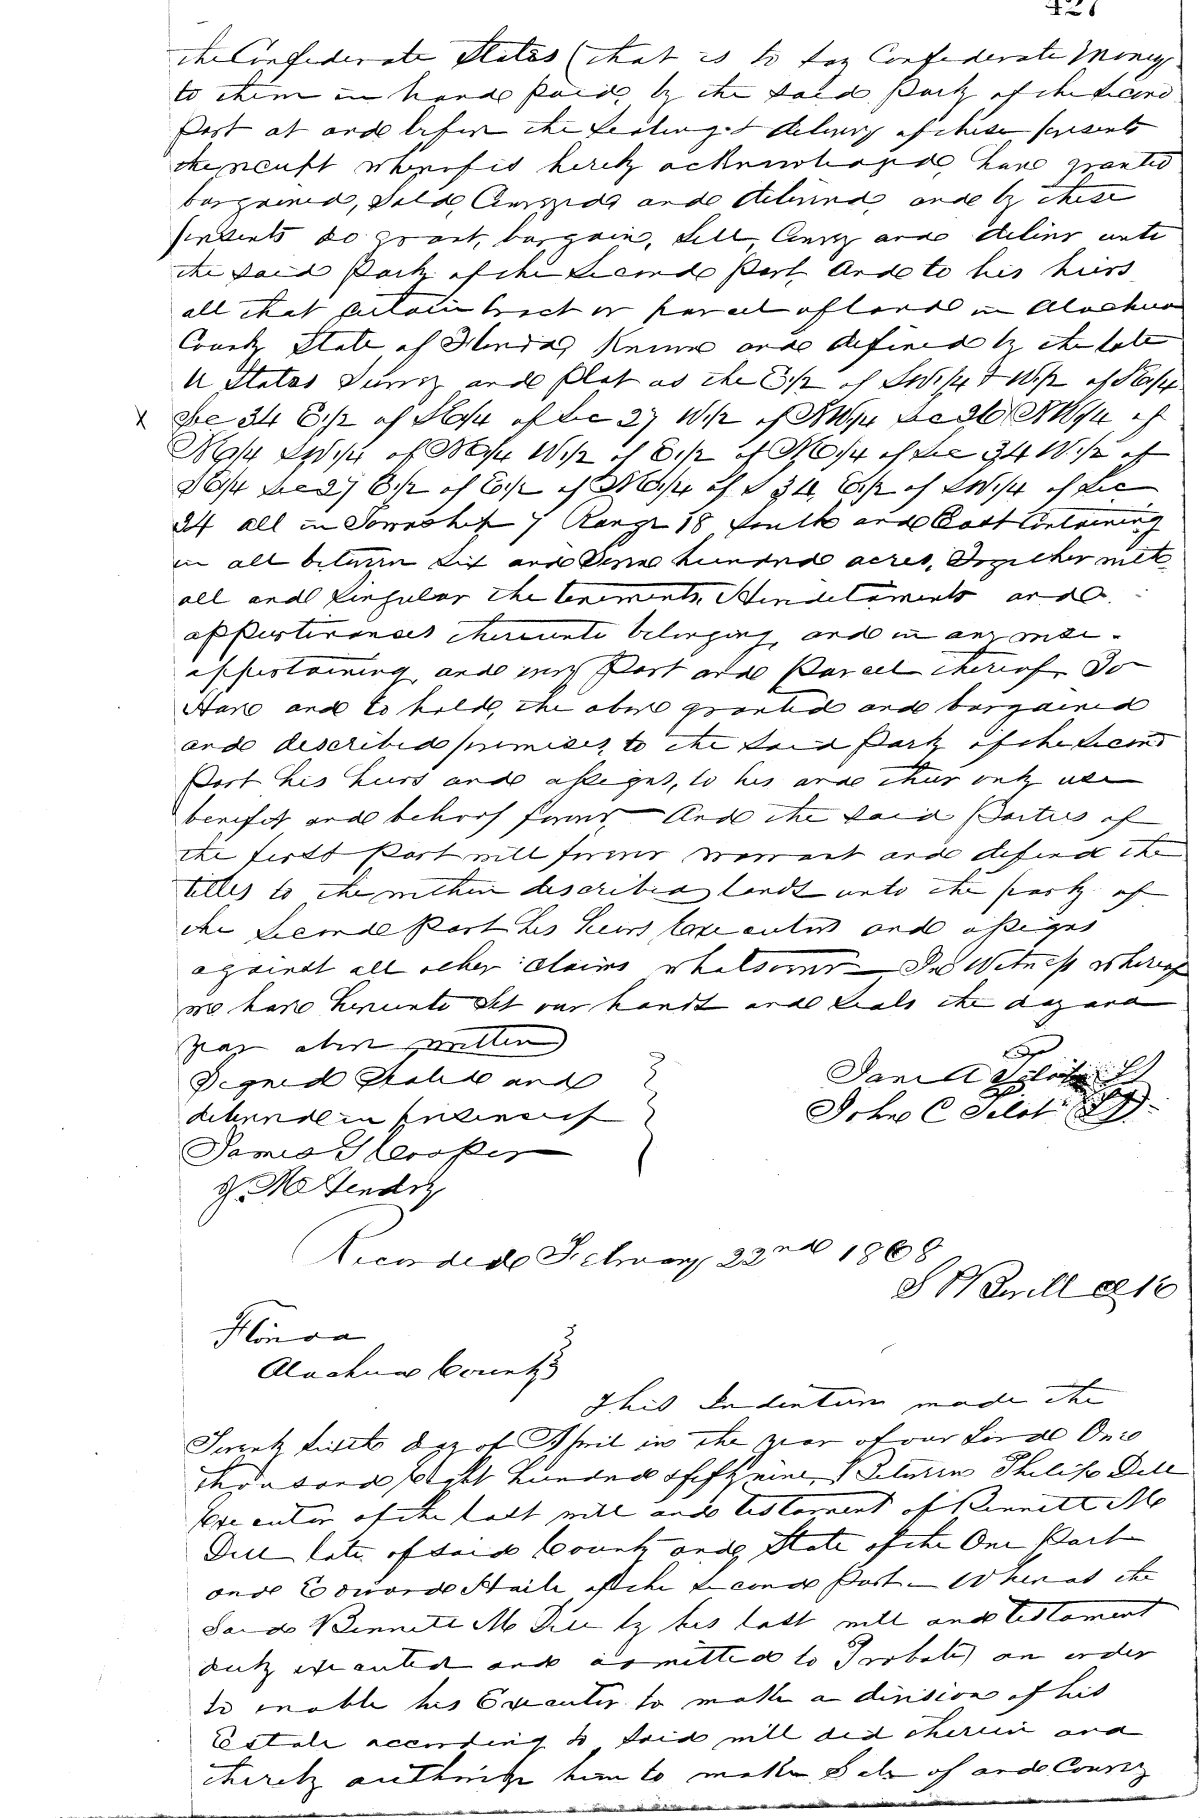 427
the Confederate States (that is to say Confederate Money
to them in hand paid, by the said Party of the Second
Part at and before the sealing & delivery of these presents
the receipt whereof is hereby acknowledged, have granted
bargained, sold, Conveyed and delivered, and by these
presents do grant, bargain, sell, Convey and deliver unto
the said Party of the Second Part, And to his heirs
all that certain tract or parcel of land in Alachua
County State of Florida, Known and defined by the late
U States Survey and Plat as the E1/2 of SW1/4 & W1/2 of SE1/4
X Sec 34 E1/2 of SE1/4 of Sec 27 W1/2 of NW1/4 Sec 26 NW1/4 of
NE1/4 SW1/4 of NE1/4 W1/2 of E1/2 of NE1/4 of Sec 34 W1/2 of
SE1/4 Sec 27 E1/2 of E1/2 of NE1/4 of S 34, E1/2 of SW1/4 of Sec
24 all in Township 7 Range 18 South and East Containing
in all between Six and Seven hundred acres, Together with
all and Singular the tenements, Hereditaments and
appurtenances thereunto belonging, and in any wise
appertaining, and every Part and Parcel thereof To
Have and to hold, the above granted and bargained
and described premises, to the said Party of the Second
Part his heirs and assigns, to his and their only use
benefit, and behoof forever And the said Parties of
the first Part will forever warrant and defend the
titles to the within described lands unto the party of
the Second Part his heirs Executors and assigns
against all other claims whatsoever In Witness whereof
we have hereunto set our hands and seals the day and
year above written
Signed Sealed and
delivered in presence of
James G Cooper
J. McHendry
Recorded February 22nd 1868
Florida
Alachua County
This Indenture made the
Twenty Sixth day of April in the year of our Lord One
thousand Eight hundred & fifty nine, Between Philip Dell
Executor of the last will and testament of Bennett M
Dell late of said County and State of the One Part
and Edward Haile of the Second Part Whereas the
Said Bennett M Dell by his last will and testament
duly executed and admitted to Probate, in order
to enable his Executor to make a division of his
Estate according to said will did therein and
thereby authorize him to make Sale of and Convey